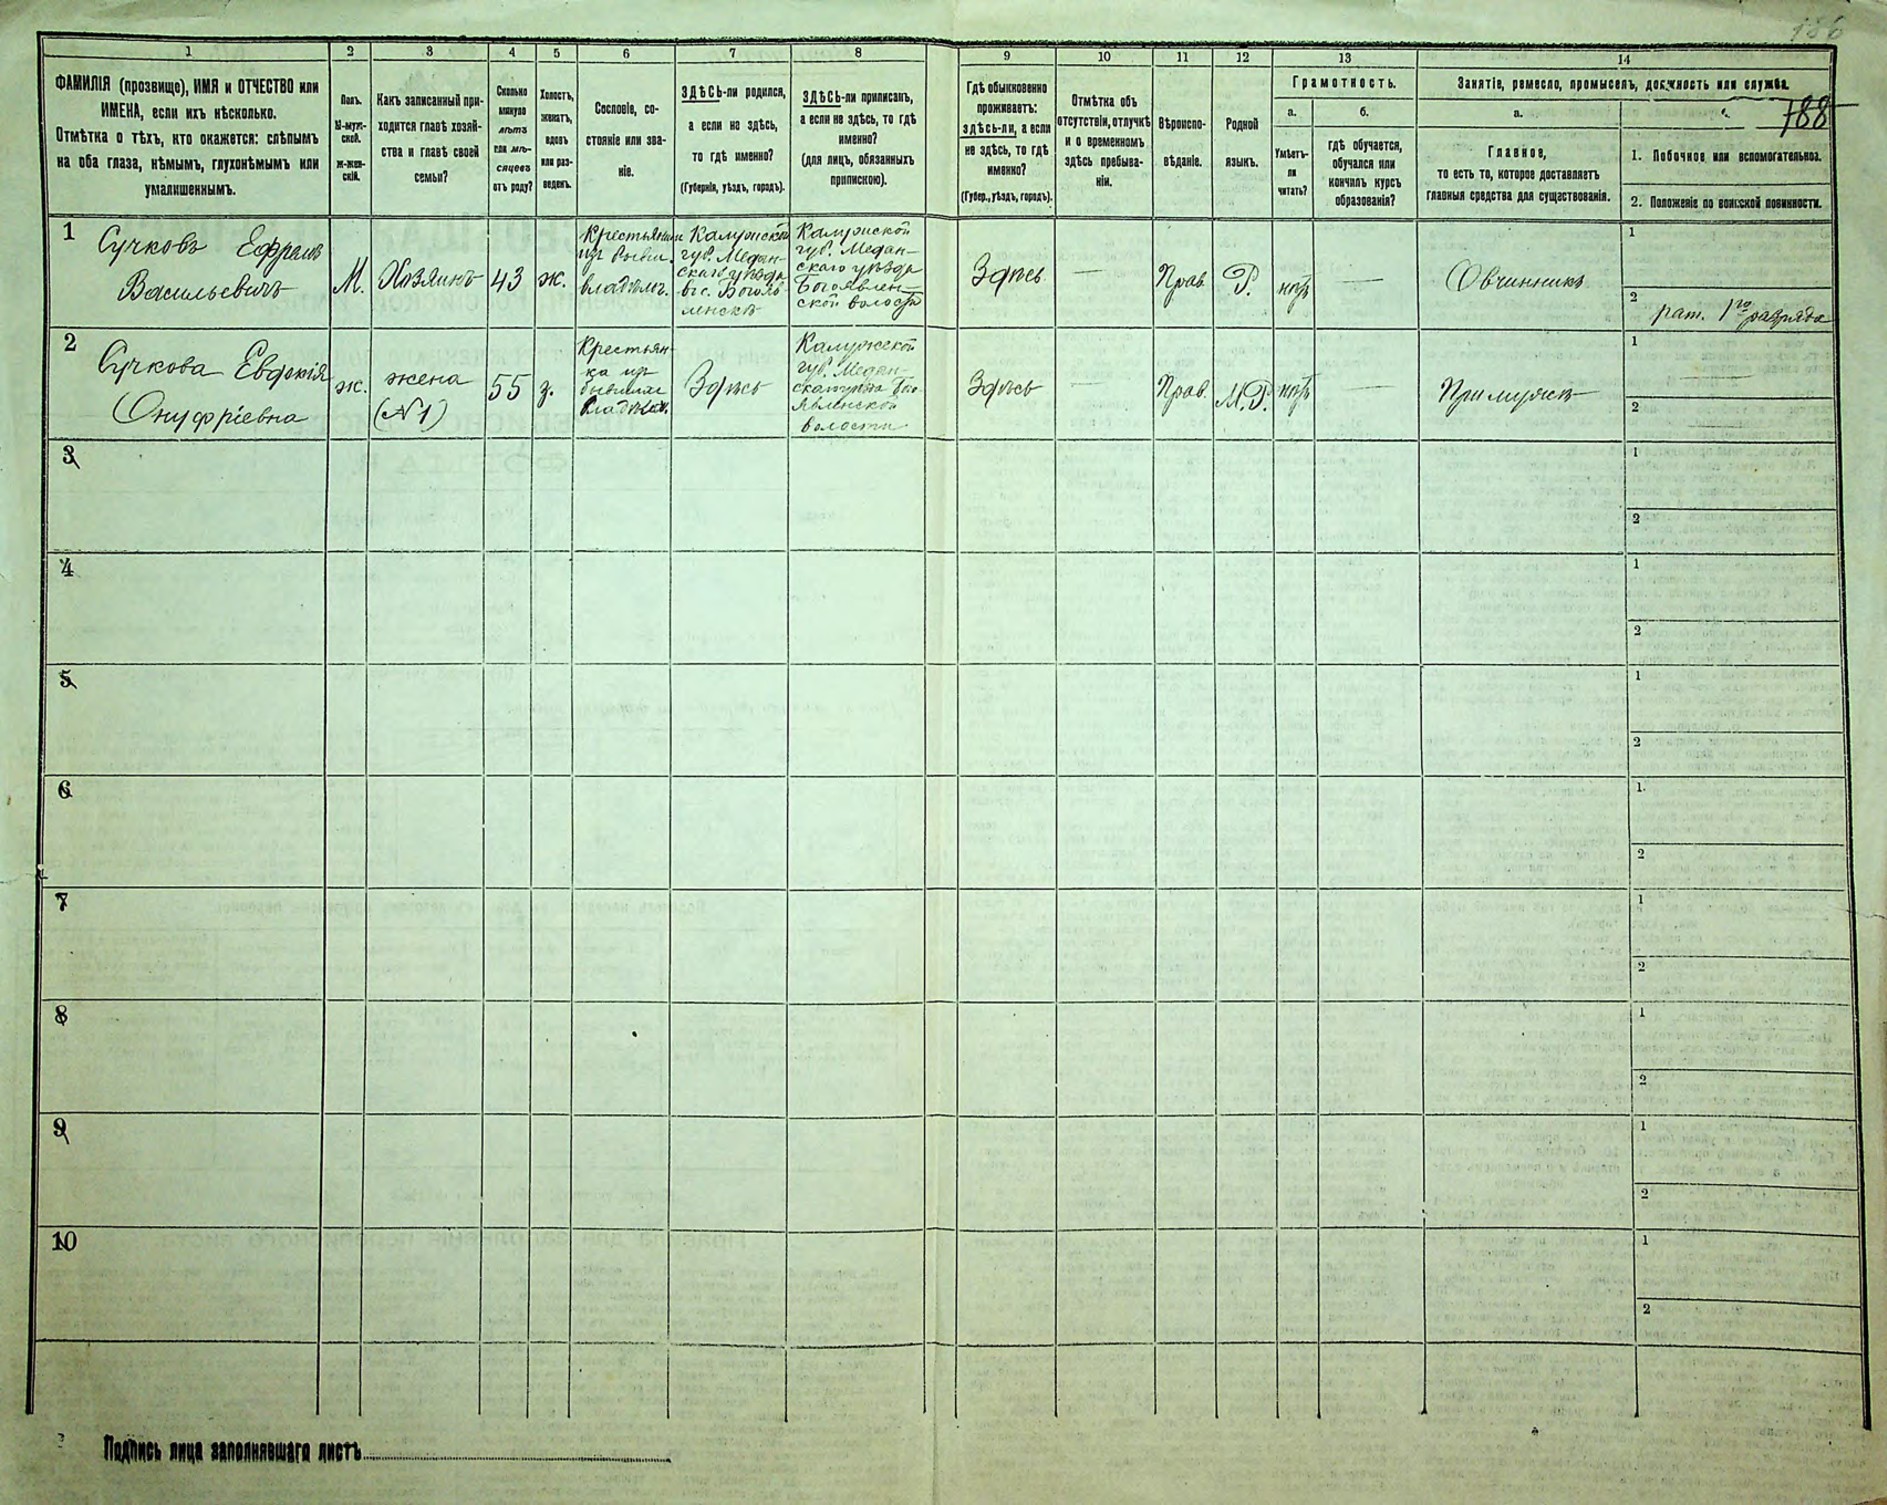 186
188
1 2 3 4 5 6 7 8 9 10 11 12 13 14
ФАМИЛІЯ (прозвище), ИМЯ и ОТЧЕСТВО или
ИМЕНА, если ихъ нѣсколько.
Отмѣтка о тѣхъ, кто окажется: слѣпымъ
на оба глаза, нѣмымъ, глухонѣмымъ или
умалишеннымъ.
Полъ.
М-муж-
ской.
ж-жен-
скій.
Какъ записанный при-
ходится главѣ хозяй-
ства и главѣ своей
семьи?
Сколько
минуло
лѣтъ
или мѣ-
сяцевъ
отъ роду?
Холостъ,
женатъ,
вдовъ
или раз-
веденъ.
Сословіе, со-
стояніе или зва-
ніе.
ЗДѢСЬ-ли родился,
а если не здѣсь,
то гдѣ именно?
(Губернія, уѣздъ, городъ).
ЗДѢСЬ-ли приписанъ,
а если не здѣсь, то гдѣ
именно?
(для лицъ, обязанныхъ
припискою).
Гдѣ обыкновенно
проживаетъ:
ЗДѢСЬ-ли, а если
не здѣсь, то гдѣ
именно?
(Губер., уѣздъ, городъ).
Отмѣтка объ
отсутствіи, отлучкѣ
и о временномъ
здѣсь пребыва-
ніи.
Вѣроиспо-
вѣданіе.
Родной
языкъ.
Грамотность.
а.
Умѣетъ-
ли
читать?
б.
гдѣ обучается,
обучался или
кончилъ курсъ
образованія?
Занятіе, ремесло, промыселъ, должность или служба.
а.
Главное,
то есть то, которое доставляетъ
главныя средства для существованія.
1. Побочное или вспомогательное.
2. Положеніе по воинской повинности.
1
Сучковъ Ефремъ
Васильевичъ
М.
Хозяинъ
43
ж.
Крестьянин
из бывш.
владѣлч.
Калужской
губ. Медын-
скаго уѣзда
въ с. Богояв-
ленскѣ
Калужской
губ. Медын-
скаго уѣзда
Богоявлен-
ской волости
Здѣсь
—
Прав.
Р.
нѣтъ
—
Овчинникъ
1
2
рат. 1го разряда
2
Сучкова Евдокія
Онуфріевна
ж.
жена
(№1)
55
з.
Крестьян-
ка из
бывших
владѣлч.
Здѣсь
Калужской
губ. Медын-
скаго уѣзда Бого-
явленской
волости
Здѣсь
Прав.
М.Р.
нѣтъ
—
При мужѣ
1
—
2
—
3
1
2
4
1
2
5
1
2
6
1.
2
7
1
2
8
1
2
9
1
2
10
1
2
Подпись лица заполнявшаго листъ